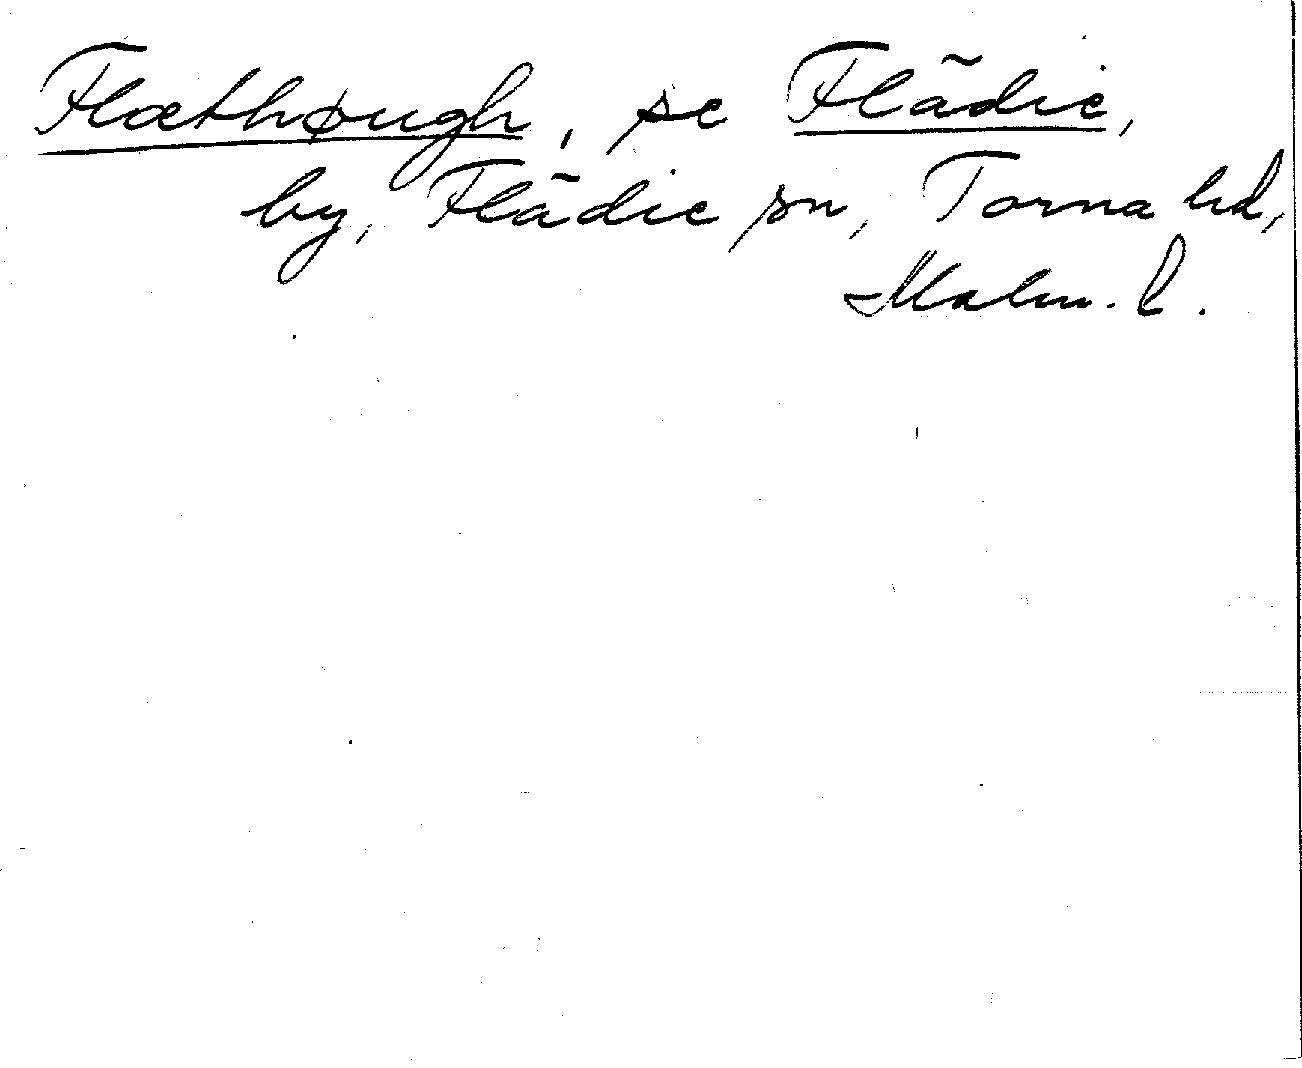 Flæthøugh, se Flädie,
by, Flädie sn, Torna hd,
Malm. l.